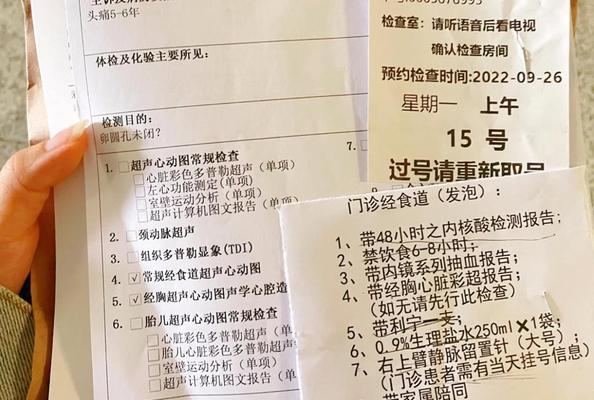 头痛5-6年
体检及化验主要所见:
检测目的:
卵圆孔未闭?
1. 超声心动图常规检查
心脏彩色多普勒超声(单项)
左心功能测定(单项)
室壁运动分析(单项)
超声计算机图文报告(单项)
2. 颈动脉超声
3. 组织多普勒显象(TDI)
4. ✓ 常规经食道超声心动图
5. ✓ 经胸超声心动图声学心腔造
6. 胎儿超声心动图常规检查
心脏彩色多普勒超声
胎儿心脏彩色多普勒
室壁运动分析(单项)
超声计算机图文报告
7.
检查室: 请听语音后看电视
确认检查房间
预约检查时间:2022-09-26
星期一 上午
15 号
过号请重新取号
门诊经食道(发泡):
1、带48小时之内核酸检测报告;
2、禁饮食6-8小时;
3、带内镜系列抽血报告;
4、带经胸心脏彩超报告;
(如无请先行此检查)
5、带利宁一支;
6、0.9%生理盐水250ml×1袋;
7、右上臂静脉留置针(大号);
(门诊患者需有当天挂号信息)
带家属陪同